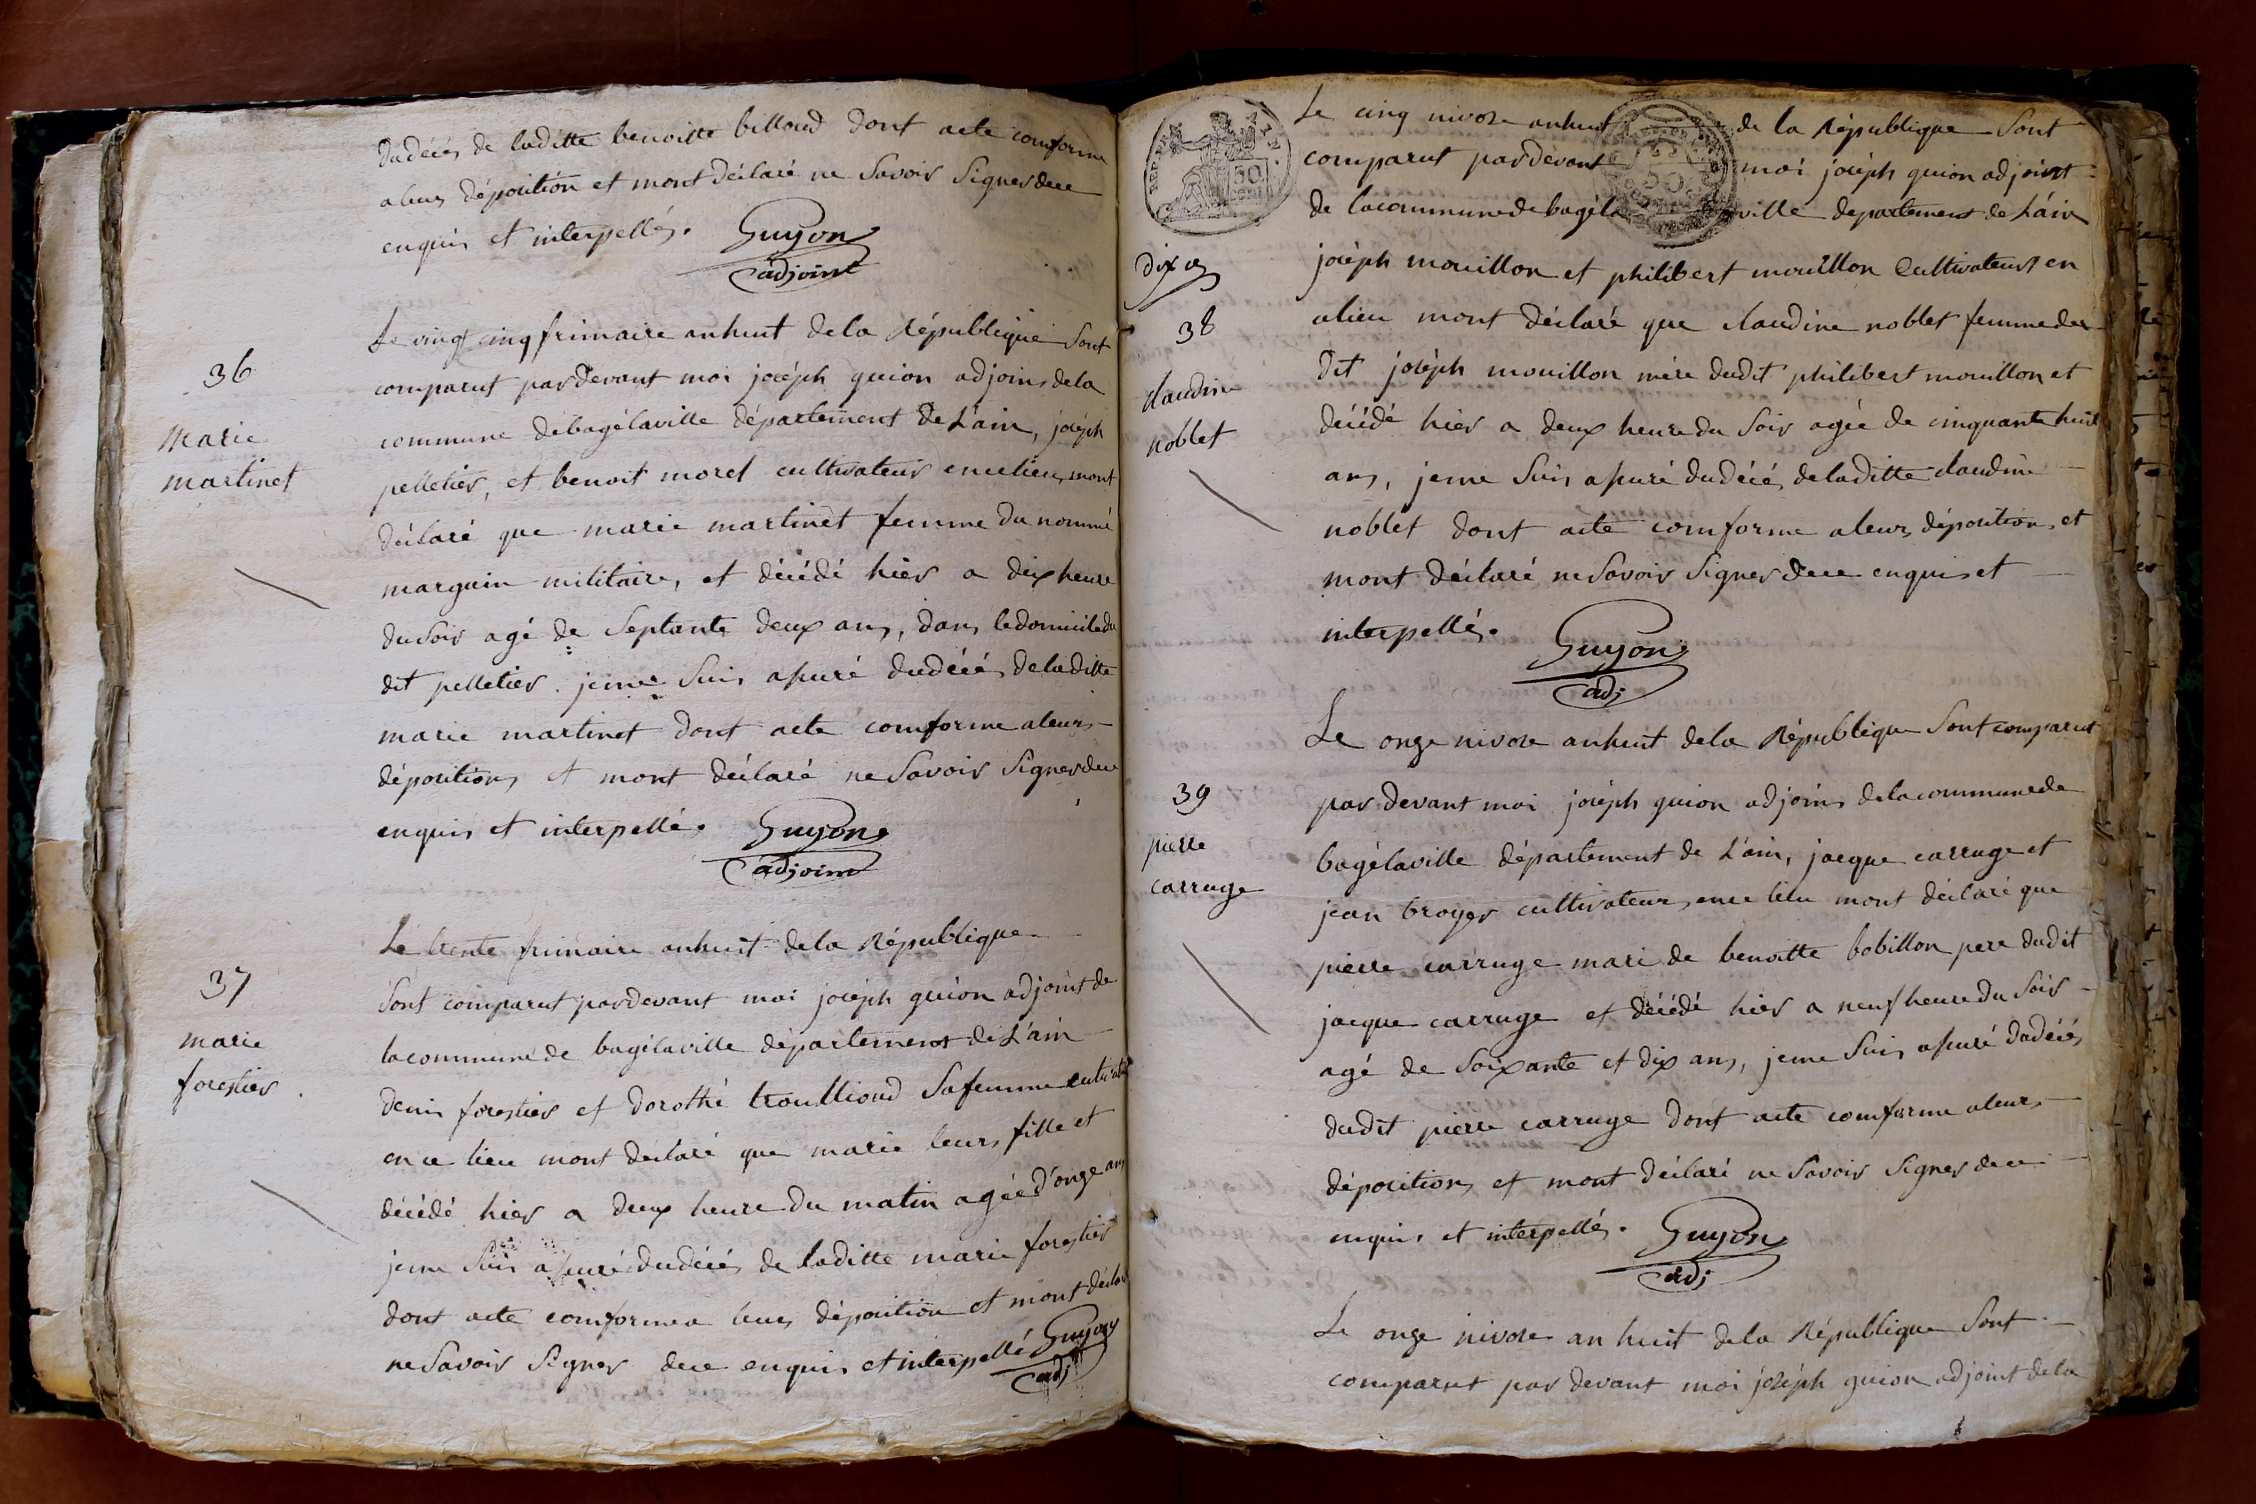 dudécés de laditte benoitte billoud dont acte comforme
aleurs déposition et mont déclaré ne Savoir Signer dece
enquis et interpellés. Guyon
adjoint
36
Marie
martinet
Le vingt cinq frimaire anhuit dela République Sont
comparut pardevant moi joséph guion adjoins dela
commune debagélaville département de L'ain, joséph
pelletier, et benoit morel cultivateurs encelieu, mont
déclaré que marie martinet femme du nommé
marguin militaire, et décédé hier a dix heure
dusoir agé de Septante deux ans, dans ledomicile du
dit pelletier. jeme Suis assuré dudécés deladitte
marie martinet dont acte comforme aleurs
dépositions et mont déclaré ne Savoir Signer dece
enquis et interpellé. Guyon
adjoint
37
marie
forestier
Le trente frimaire anhuit dela République
Sont comparut pardevant moi joséph guion adjoint de
lacommune de bagélaville département de L'ain
denis forestier et dorothé trouilloud Safemme
en ce lieu mont déclaré que marie leurs fille et
décédé hier a deux heure du matin agée d'onze ans
jeme Suis assuré dudécés de laditte marie forestier
dont acte comforme a leurs déposition et mont
ne Savoir Signer dece enquis et interpellé Guyon
adj
Le cinq nivose anhuit de la République Sont
comparut pardevant moi joséph guion adjoint
de lacommune de bagéla ville département de L'ain
dix
38
claudine
noblet
joséph mouillon et philibert mouillon Cultivateurs en
alieu mont déclaré que claudine noblet femme du
dit joséph mouillon mére dudit philibert mouillon et
décédé hier a deux heure du Soir agée de cinquante huit
ans, jeme Suis assuré dudécés deladitte claudine
noblet dont acte comforme aleurs dépositions et
mont déclaré ne Savoir Signer dece enquis et
interpellés. Guyon
adj
39
pierre
carruge
Le onze nivose anhuit dela République Sont comparut
par devant moi joséph guion adjoins delacommune de
bagélaville département de L'ain, jacque carruge et
jean broyer cultivateurs, ence lieu mont déclaré que
pierre carruge mari de benoitte bobillon pere dudit
jacque carruge et décédé hier a neuf heure du Soir
agé de Soixante et dix ans, jeme Suis assuré dudécés
dudit pierre carruge dont acte comforme aleurs
dépositions et mont déclaré ne Savoir Signer dece
enquis et interpellés. Guyon
adj
Le onze nivose an huit dela République Sont
comparut par devant moi joséph guion adjoint dela